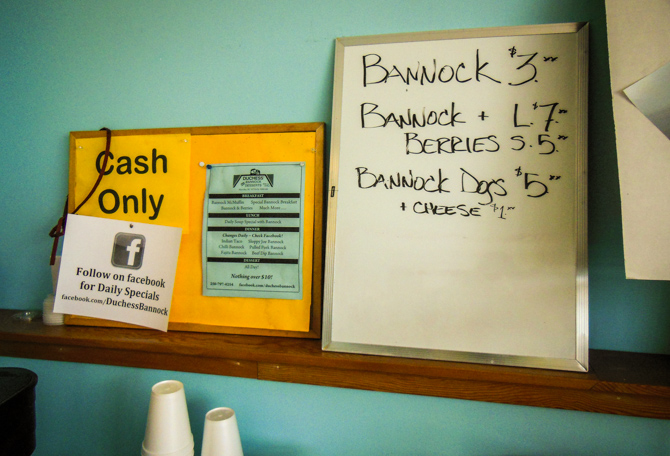 Cash
Only
f
Follow on facebook
for Daily Specials
facebook.com/DuchessBannock
DUCHESS
BANNOCK
DESSERTS
BREAKFAST
Bannock McMuffin Special Bannock Breakfast
Bannock & Berries Much More
LUNCH
Daily Soup Special with Bannock
DINNER
Changes Daily - Check Facebook!
Indian Taco Sloppy Joe Bannock
Chili Bannock Pulled Pork Bannock
Fajita Bannock Beef Dip Bannock
DESSERT
All Day!
Nothing over $10!
facebook.com/duchessbannock
BANNOCK $3.00
BANNOCK + L.$7.00
BERRIES S.5.00
BANNOCK DOGS $5.00
+ CHEESE $1.00